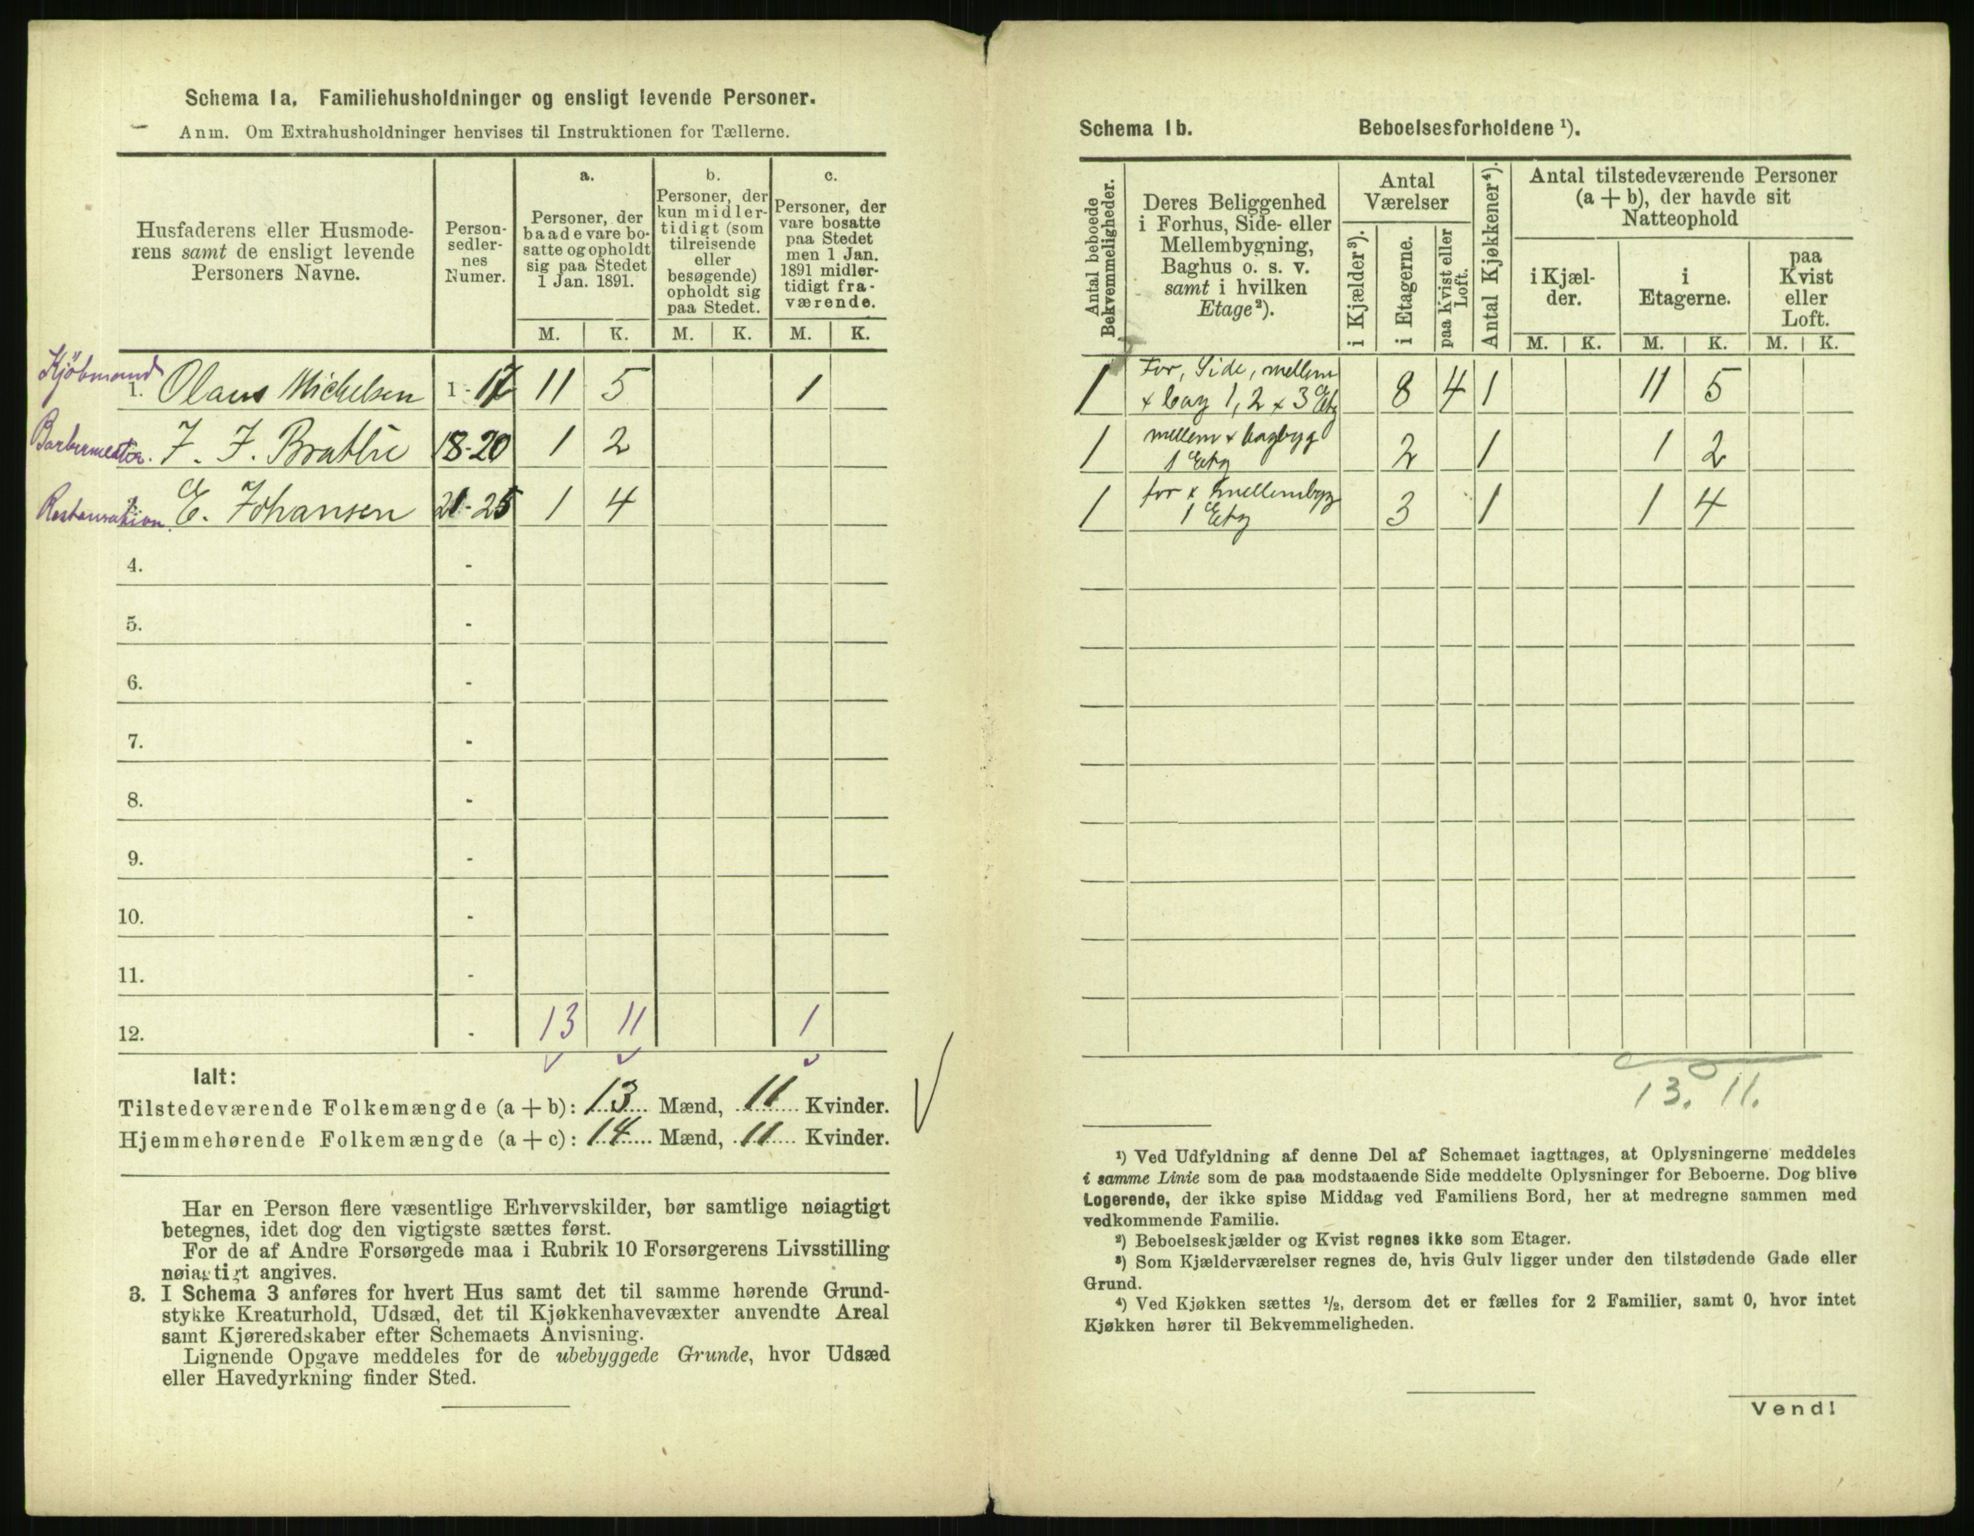 Schema 1a. Familiehusholdninger og ensligt levende Personer.
Anm. Om Extrahusholdninger henvises til Instruktionen for Tællerne.
Husfaderens eller Husmoderens samt de ensligt levende Personers Navne.
Personsedlernes Numer.
a.
Personer, der baade vare bosatte og opholdt sig paa Stedet 1 Jan. 1891.
b.
Personer, der kun midlertidigt (som tilreisende eller besøgende) opholdt sig paa Stedet.
c.
Personer, der vare bosatte paa Stedet men 1 Jan. 1891 midlertidigt fraværende.
M. K. M. K. M. K.
Kjöbmand
1. Olaus Mickelsen 1-17 11 5 1
Barbermester F. F. Brattlie 18-20 1 2
Restauration E. Johansen 21-25 1 4
4. -
5. -
6. -
7. -
8. -
9. -
10. -
11. -
12. - 13 11 1
Ialt:
Tilstedeværende Folkemængde (a + b): 13 Mænd, 11 Kvinder.
Hjemmehørende Folkemængde (a + c): 14 Mænd, 11 Kvinder.
Har en Person flere væsentlige Erhvervskilder, bør samtlige nøiagtigt
betegnes, idet dog den vigtigste sættes først.
For de af Andre Forsørgede maa i Rubrik 10 Forsørgerens Livsstilling
nøiagtigt angives.
3. I Schema 3 anføres for hvert Hus samt det til samme hørende Grund-
stykke Kreaturhold, Udsæd, det til Kjøkkenhavevæxter anvendte Areal
samt Kjøreredskaber efter Schemaets Anvisning.
Lignende Opgave meddeles for de ubebyggede Grunde, hvor Udsæd
eller Havedyrkning finder Sted.
Schema 1b. Beboelsesforholdene ¹).
Antal beboede Bekvemmeligheder.
Deres Beliggenhed i Forhus, Side- eller Mellembygning, Baghus o. s. v. samt i hvilken Etage²).
Antal Værelser
i Kjælder³).
i Etagerne.
paa Kvist eller Loft.
Antal Kjøkkener⁴).
Antal tilstedeværende Personer (a + b), der havde sit Natteophold
i Kjælder.
i Etagerne.
paa Kvist eller Loft.
M. K. M. K. M. K.
For, Side, mellem
1 x bag 1, 2 x 3 Etg 8 4 1 11 5
mellem x bagbyg
1 1 Etg 2 1 1 2
for x mellembyg
1 1 Etg 3 1 1 4
13. 11.
¹) Ved Udfyldning af denne Del af Schemaet iagttages, at Oplysningerne meddeles
i samme Linie som de paa modstaaende Side meddelte Oplysninger for Beboerne. Dog blive
Logerende, der ikke spise Middag ved Familiens Bord, her at medregne sammen med
vedkommende Familie.
²) Beboelseskjælder og Kvist regnes ikke som Etager.
³) Som Kjælderværelser regnes de, hvis Gulv ligger under den tilstødende Gade eller
Grund.
⁴) Ved Kjøkken sættes ½, dersom det er fælles for 2 Familier, samt 0, hvor intet
Kjøkken hører til Bekvemmeligheden.
Vend!